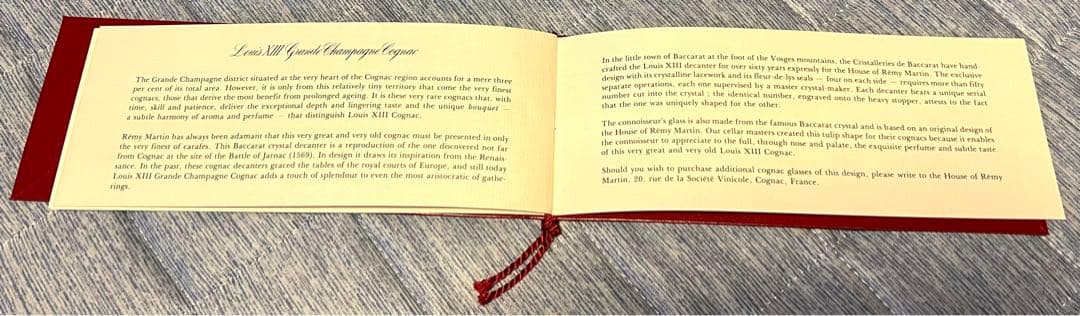 Louis XIII Grande Champagne Cognac
The Grande Champagne district situated at the very heart of the Cognac region accounts for a mere three
per cent of its total area. However, it is only from this relatively tiny territory that come the very finest
cognacs, those that derive the most benefit from prolonged ageing. It is these very rare cognacs that, with
time, skill and patience, deliver the exceptional depth and lingering taste and the unique bouquet —
a subtle harmony of aroma and perfume — that distinguish Louis XIII Cognac.
Rémy Martin has always been adamant that this very great and very old cognac must be presented in only
the very finest of carafes. This Baccarat crystal decanter is a reproduction of the one discovered not far
from Cognac at the site of the Battle of Jarnac (1569). In design it draws its inspiration from the Renais-
sance. In the past, these cognac decanters graced the tables of the royal courts of Europe, and still today
Louis XIII Grande Champagne Cognac adds a touch of splendour to even the most aristocratic of gathe-
rings.
In the little town of Baccarat at the foot of the Vosges mountains, the Cristalleries de Baccarat have hand-
crafted the Louis XIII decanter for over sixty years expressly for the House of Rémy Martin. The exclusive
design with its crystalline lacework and its fleur-de-lys seals — four on each side — requires more than fifty
separate operations, each one supervised by a master crystal-maker. Each decanter bears a unique serial
number cut into the crystal ; the identical number, engraved onto the heavy stopper, attests to the fact
that the one was uniquely shaped for the other.
The connoisseur's glass is also made from the famous Baccarat crystal and is based on an original design of
the House of Rémy Martin. Our cellar masters created this tulip shape for their cognacs because it enables
the connoisseur to appreciate to the full, through nose and palate, the exquisite perfume and subtle taste
of this very great and very old Louis XIII Cognac.
Should you wish to purchase additional cognac glasses of this design, please write to the House of Rémy
Martin, 20, rue de la Société Vinicole, Cognac, France.